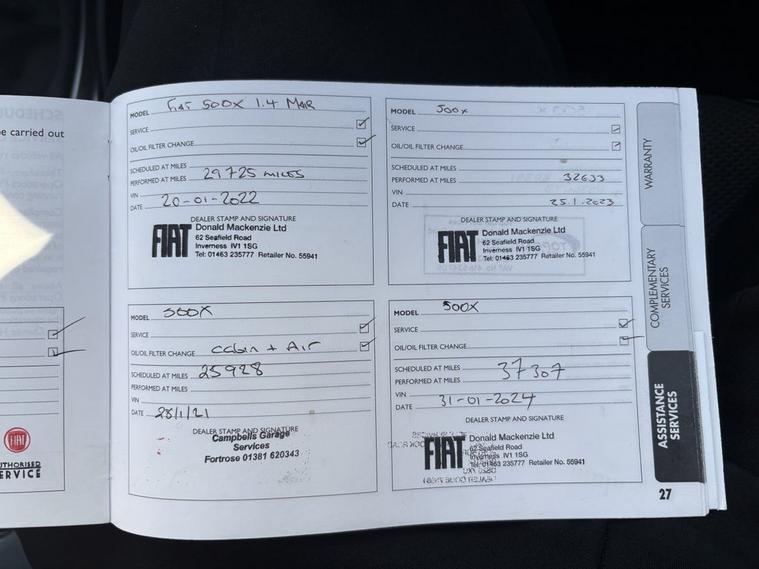 SCHEDU
be carried out
FIAT
AUTHORISED
SERVICE
MODEL Fiat 500X 1.4 MAIR
SERVICE
OIL/OIL FILTER CHANGE
SCHEDULED AT MILES
PERFORMED AT MILES 29725 MILES
VIN
DATE 20-01-2022
DEALER STAMP AND SIGNATURE
FIAT
Donald Mackenzie Ltd
62 Seafield Road
Inverness IV1 1SG
Tel: 01463 235777 Retailer No. 55941
MODEL 500x
SERVICE
OIL/OIL FILTER CHANGE
SCHEDULED AT MILES
PERFORMED AT MILES 32633
VIN
DATE 25.1.2023
DEALER STAMP AND SIGNATURE
FIAT
Donald Mackenzie Ltd
62 Seafield Road
Inverness IV1 1SG
Tel: 01463 235777 Retailer No. 55941
MODEL 500X
SERVICE
OIL/OIL FILTER CHANGE Cabin + Air
SCHEDULED AT MILES 25928
PERFORMED AT MILES
VIN
DATE 28/1/21
DEALER STAMP AND SIGNATURE
Campbells Garage
Services
Fortrose 01381 620343
MODEL 500X
SERVICE
OIL/OIL FILTER CHANGE
SCHEDULED AT MILES 37307
PERFORMED AT MILES
VIN
DATE 31-01-2024
DEALER STAMP AND SIGNATURE
FIAT
Donald Mackenzie Ltd
62 Seafield Road
Inverness IV1 1SG
Tel: 01463 235777 Retailer No. 55941
WARRANTY
COMPLEMENTARY
SERVICES
ASSISTANCE
SERVICES
27